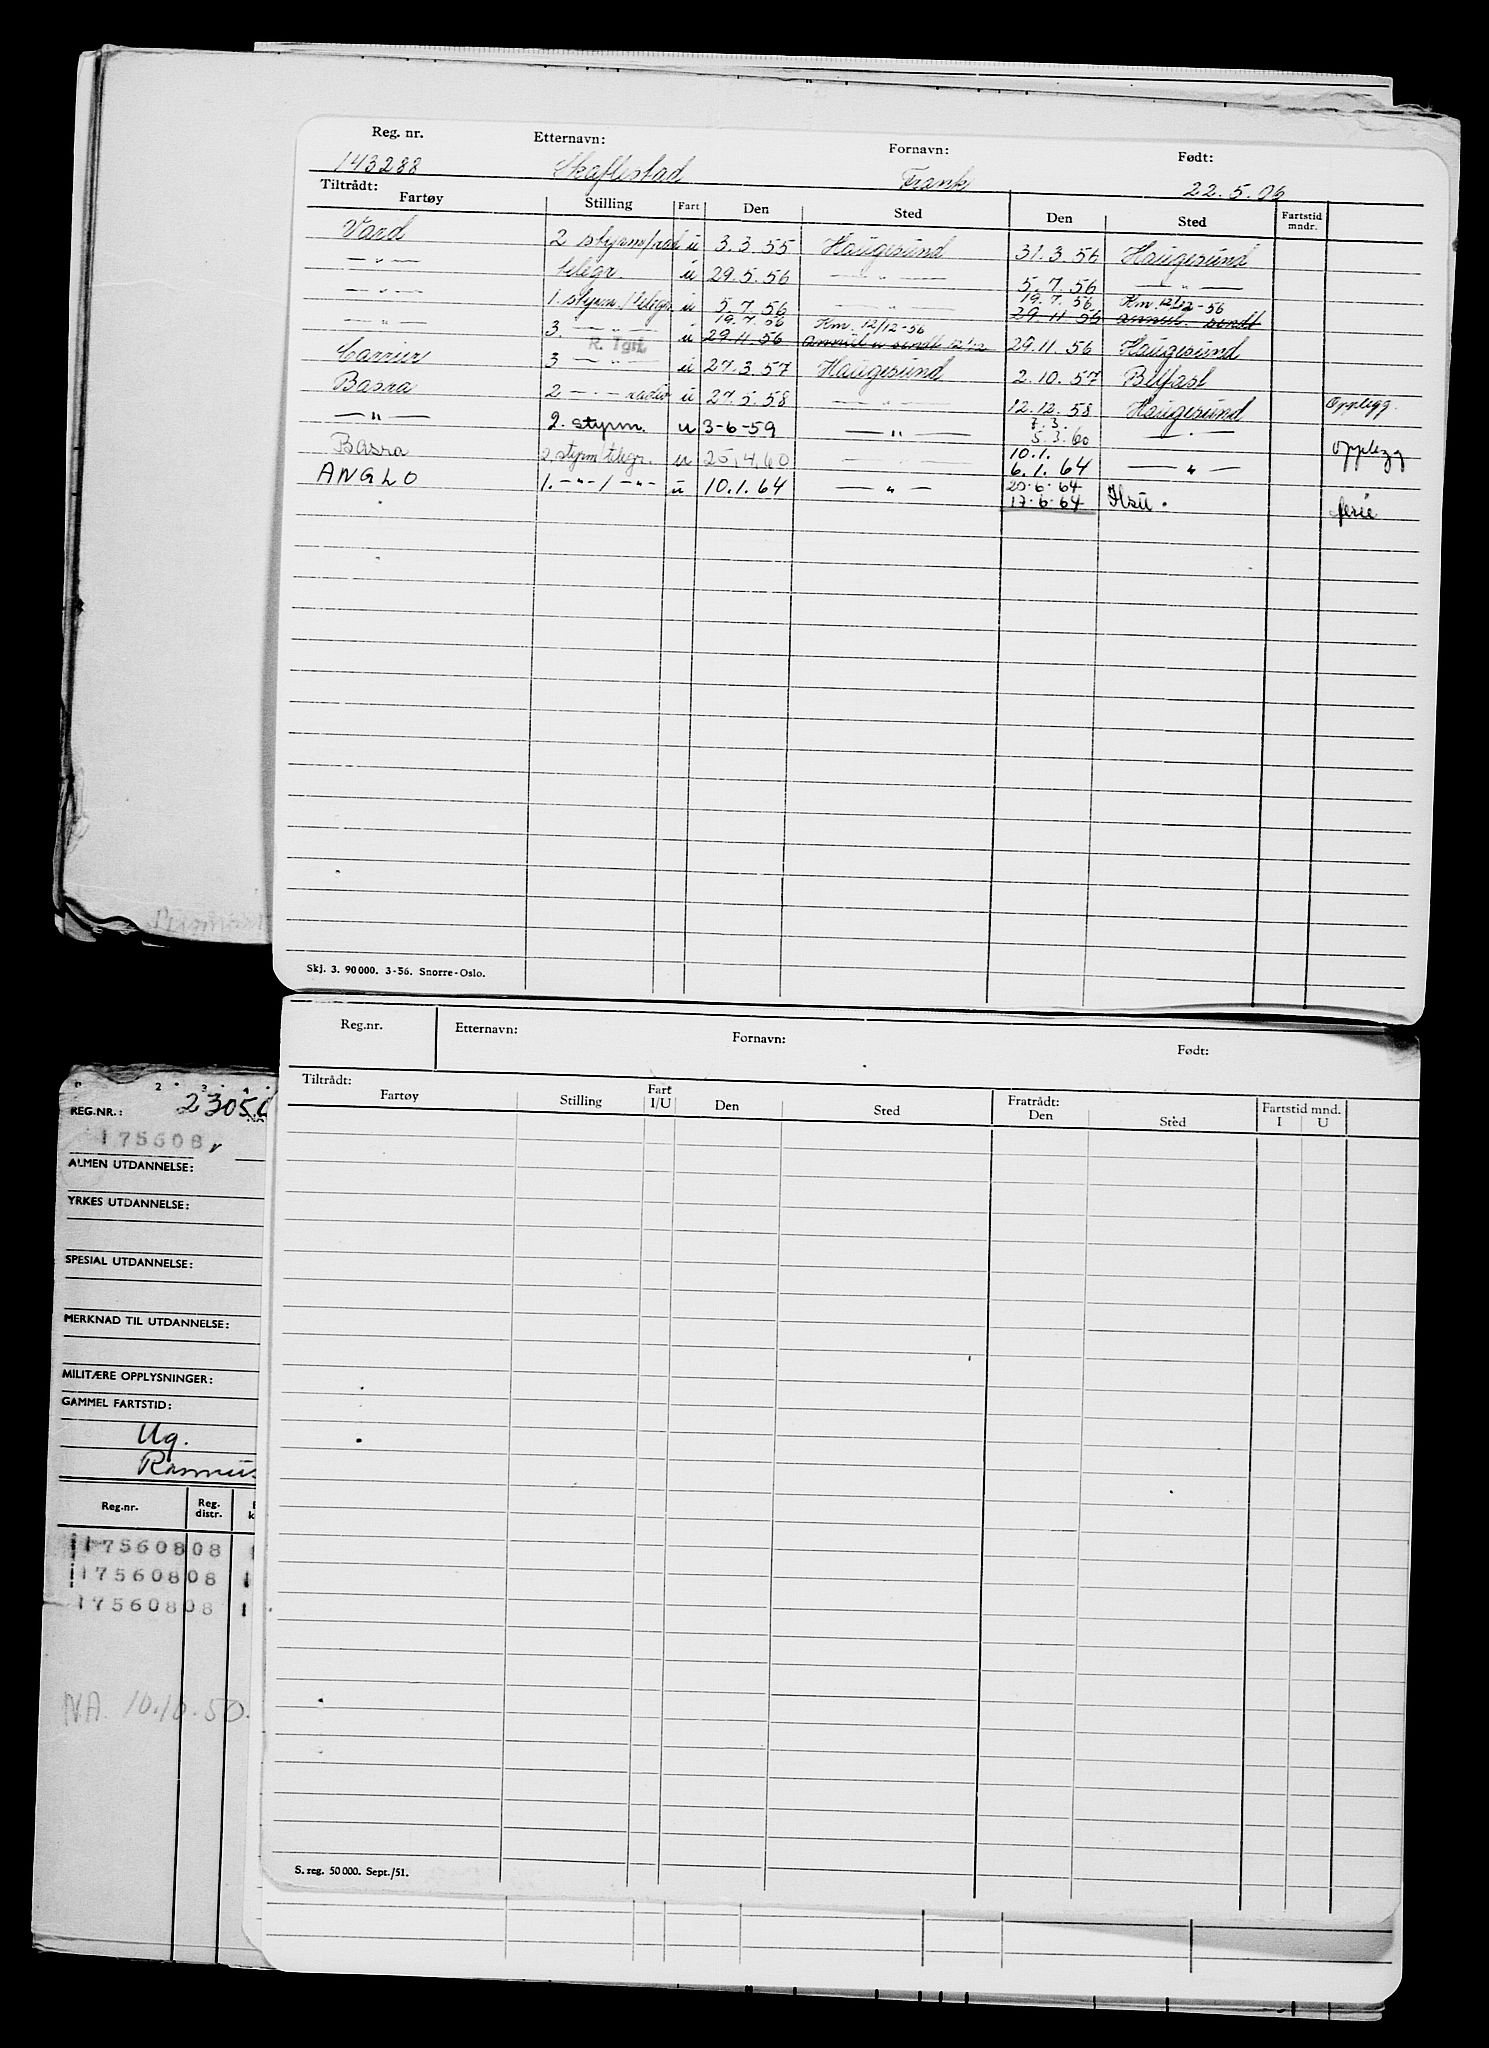 Reg. nr. Etternavn: Fornavn: Født:
143288 Skaftestad Frank 22.5.06
Tiltrådt:
Fartøy Stilling Fart Den Sted Den Sted Fartstid mndr.
Vard 2 styrm/rad u 3.3.55 Haugesund 31.3.56 Haugesund
—"— telegr u 29.5.56 —"— 5.7.56 —"—
19.7.56 Km. 12/12-56
—"— 1. styrm./telegr u 5.7.56 —"— 29.11.56 annul. sendt
19.7.56 Km. 12/12-56
—"— 3. —"— u 29.11.56 annul u sendt 12/12 29.11.56 Haugesund
R. Tgrf.
Carrier 3 —"— u 27.3.57 Haugesund 2.10.57 Belfast
Basra 2 —"— radio u 27.5.58 —"— 12.12.58 Haugesund Opplegg.
7.3.
—"— 2. styrm. u 3-6-59 —"— 5.3.60 —"—
10.1.
Basra 2. styrm/telegr. u 25.4.60 —"— 6.1.64 —"— Opplegg
20-6-64
ANGLO 1. —"— / —"— u 10.1.64 —"— 17-6-64 Hsu. ferie
Skj. 3. 90000. 3-56. Snorre-Oslo.
Reg.nr. Etternavn: Fornavn: Født:
Tiltrådt: Fratrådt:
Fartøy Stilling Fart I/U Den Sted Den Sted Fartstid mnd. I U
S. reg. 50000. Sept./51.
2 3 4
REG.NR.: 2305
175608
ALMEN UTDANNELSE:
YRKES UTDANNELSE:
SPESIAL UTDANNELSE:
MERKNAD TIL UTDANNELSE:
MILITÆRE OPPLYSNINGER:
GAMMEL FARTSTID:
Ug.
Rasmus
Reg.nr. Reg. distr.
17560808
17560808
17560808
NA. 10.10.50.